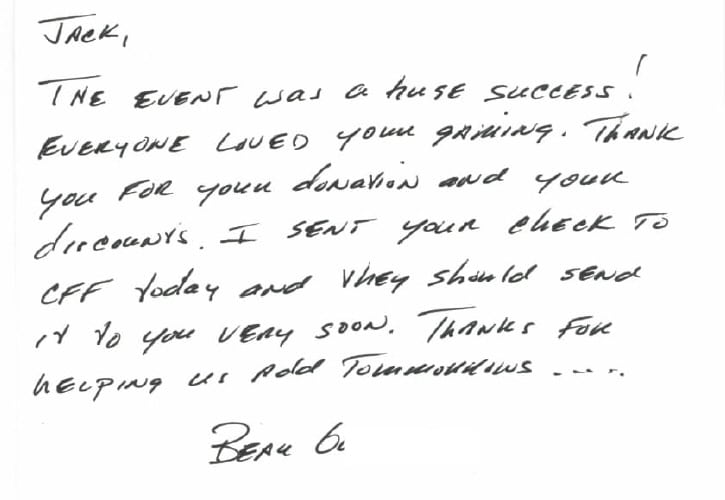 Jack,
The event was a huge success!
Everyone loved your gaming. Thank
you for your donation and your
discounts. I sent your check to
CFF today and they should send
it to you very soon. Thanks for
helping us Add Tommorrows .....
Beau G